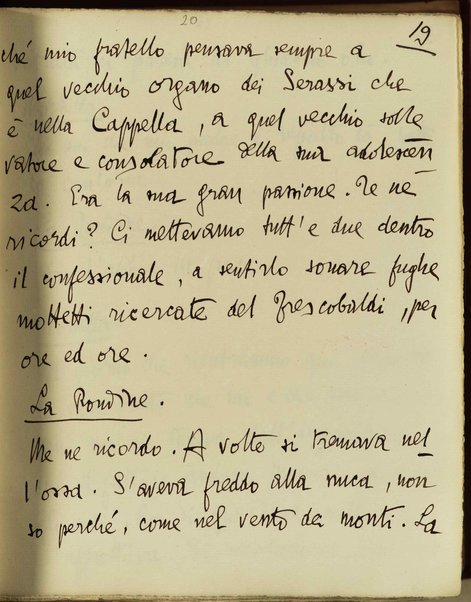 20
19
ché mio fratello pensava sempre a
quel vecchio organo dei Serassi che
è nella Cappella, a quel vecchio solle
vatore e consolatore della sua adolescen
za. Era la sua gran passione. Te ne
ricordi? Ci mettevamo tutt'e due dentro
il confessionale, a sentirlo sonare fughe
mottetti ricercate del Frescobaldi, per
ore ed ore.
La Rondine.
Me ne ricordo. A volte si tremava nel
l'ossa. S'aveva freddo alla nuca, non
so perché, come nel vento da monti. La